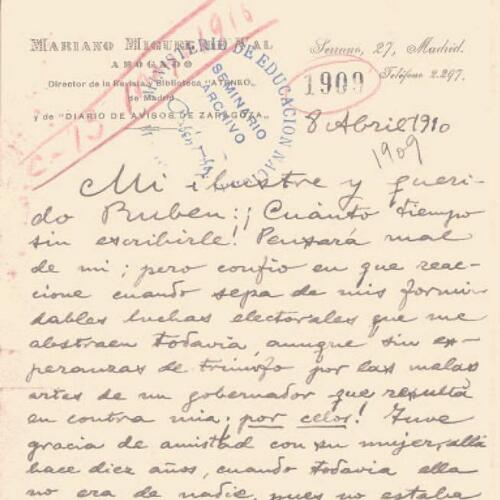 MARIANO MIGUEL DE VAL
ABOGADO
Director de la Revista y Biblioteca "ATENEO"
de Madrid
y de "DIARIO DE AVISOS DE ZARAGOZA"
Serrano, 27, Madrid.
Teléfono 2.297.
1909
MINISTERIO DE EDUCACION NACIONAL
SEMINARIO
ARCHIVO
8 Abril 1910
1909
Mi ilustre y queri-
do Ruben: ¡Cuánto tiempo
sin escribirle! Pensará mal
de mi; pero confio en que reac-
cione cuando sepa de mis formi-
dables luchas electorales que me
abstraen todavia, aunque sin es-
peranzas de triunfo por las malas
artes de un gobernador que resulta
en contra mia; por celos! Tuve
gracia de amistad con su mujer, allá
hace diez años, cuando todavia ella
no era de nadie, pues no estaba